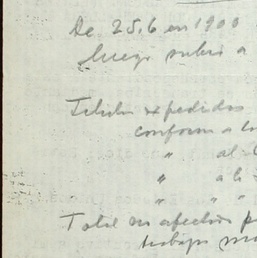 De 25.6 en 1900
luego subió a
Titulos expedidos
conforme a la
" al
" a la
" " "
Total en afectivo
trabajo